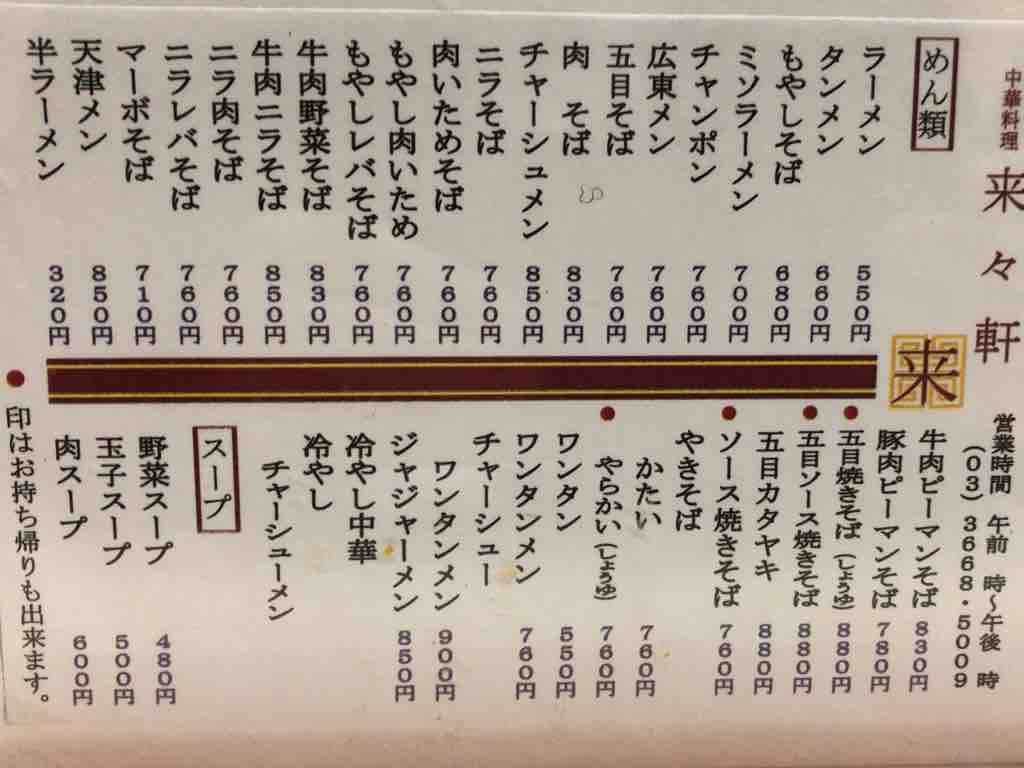 中華料理 来々軒
営業時間 午前 時〜午後 時
(03)3668・5009
来
めん類
ラーメン 550円
タンメン 660円
もやしそば 680円
ミソラーメン 700円
チャンポン 760円
広東メン 760円
五目そば 760円
肉そば 830円
チャーシュメン 850円
ニラそば 760円
肉いためそば 760円
もやし肉いため 760円
もやしレバそば 760円
牛肉野菜そば 830円
牛肉ニラそば 850円
ニラ肉そば 760円
ニラレバそば 760円
マーボそば 710円
天津メン 850円
半ラーメン 320円
牛肉ピーマンそば 830円
豚肉ピーマンそば 780円
●五目焼きそば(しょうゆ) 880円
●五目ソース焼きそば 880円
五目カタヤキ 880円
●ソース焼きそば 760円
やきそば
かたい 760円
●やらかい(しょうゆ) 760円
ワンタン 550円
ワンタンメン 760円
チャーシュー
ワンタンメン 900円
ジャジャーメン 850円
冷やし中華
冷やし
チャーシューメン
スープ
野菜スープ 480円
玉子スープ 500円
肉スープ 600円
●印はお持ち帰りも出来ます。